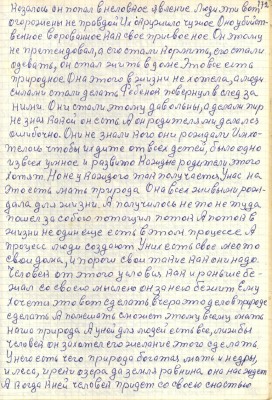 Казалось он попал в неловкое явление. Люди эти вот
огорожены не правдой Их окружило чужое. Оно убийст-
венное ворованное как свое присвоенное. Он этому
не претендовал, его стали кормить, его стали
одевать, он стал жить в доме Это все есть
природное. Она этого в жизни не хотела, а люди
силами стали делать. Ребенок повернул вслед за
ними. Они стали этому довольны, а делали мир
не зная какой он есть. А он родителями делался
ошибочно. Они не знали кого они рождали. Им хо-
телось чтобы их дите от всех детей, было одно
из всех умное и развито. Каждые родители этого
хотят. Но не у каждого так получается. У нас на
это есть мать природа. Она всех живыми рож-
дала для жизни. А получилось не то не туда
пошел за собою потащил поток. А поток в
жизни не один еще есть в этом процессе. А
процесс люди создают. У них есть свое место
свои дома, и пороги свои такие как они надо.
Человек от этого условия как и раньше бе-
жал со своею мыслею он за нею бежит. Ему
хочется это вот сделать вчера это дело природе
сделать. А помешать сможет этому всему мать
наша природа. А у ней для людей есть все, лишь бы
человек он захотел его желание этого сделать.
У него есть чего природа богатая мать и недры,
и леса, и реки озера да земля равнина. она нас ждет
А когда к ней человек придет со своею снастью